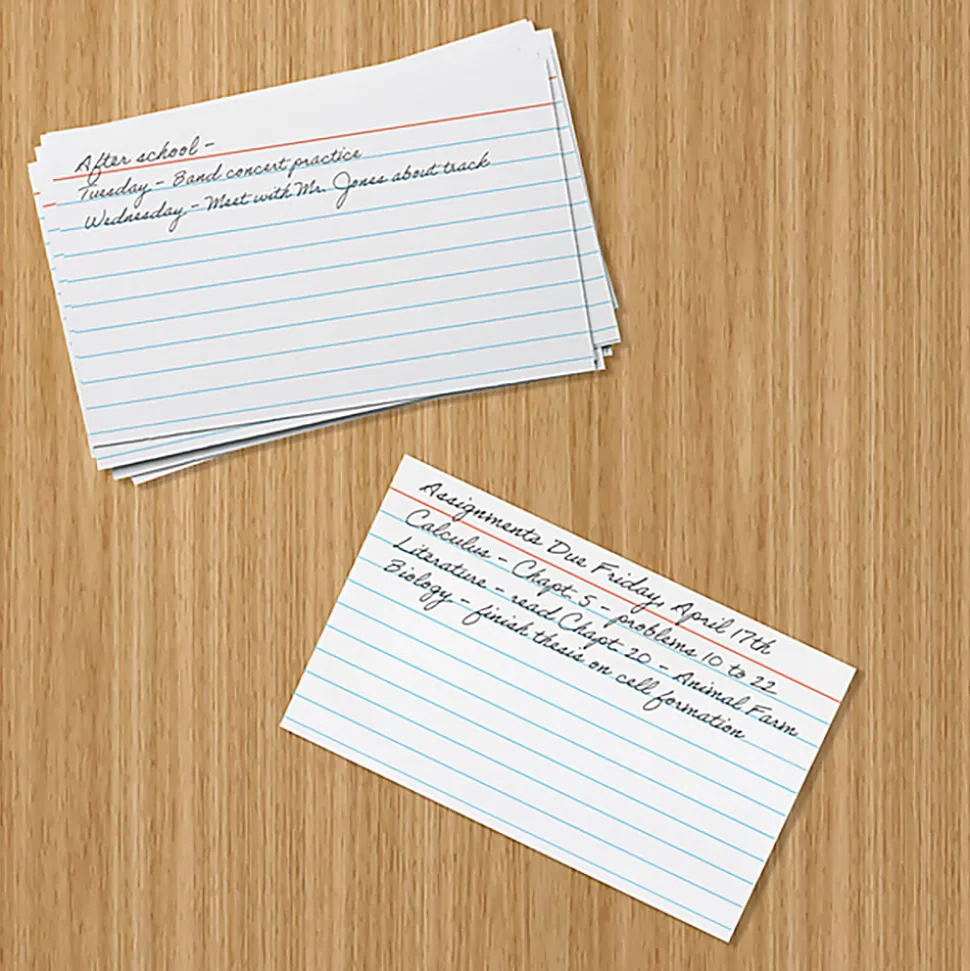 After school -
Tuesday - Band concert practice
Wednesday - Meet with Mr. Jones about track
Assignments Due Friday, April 17th
Calculus - Chapt. 5 - problems 10 to 22
Literature - read Chapt. 20 - Animal Farm
Biology - finish thesis on cell formation